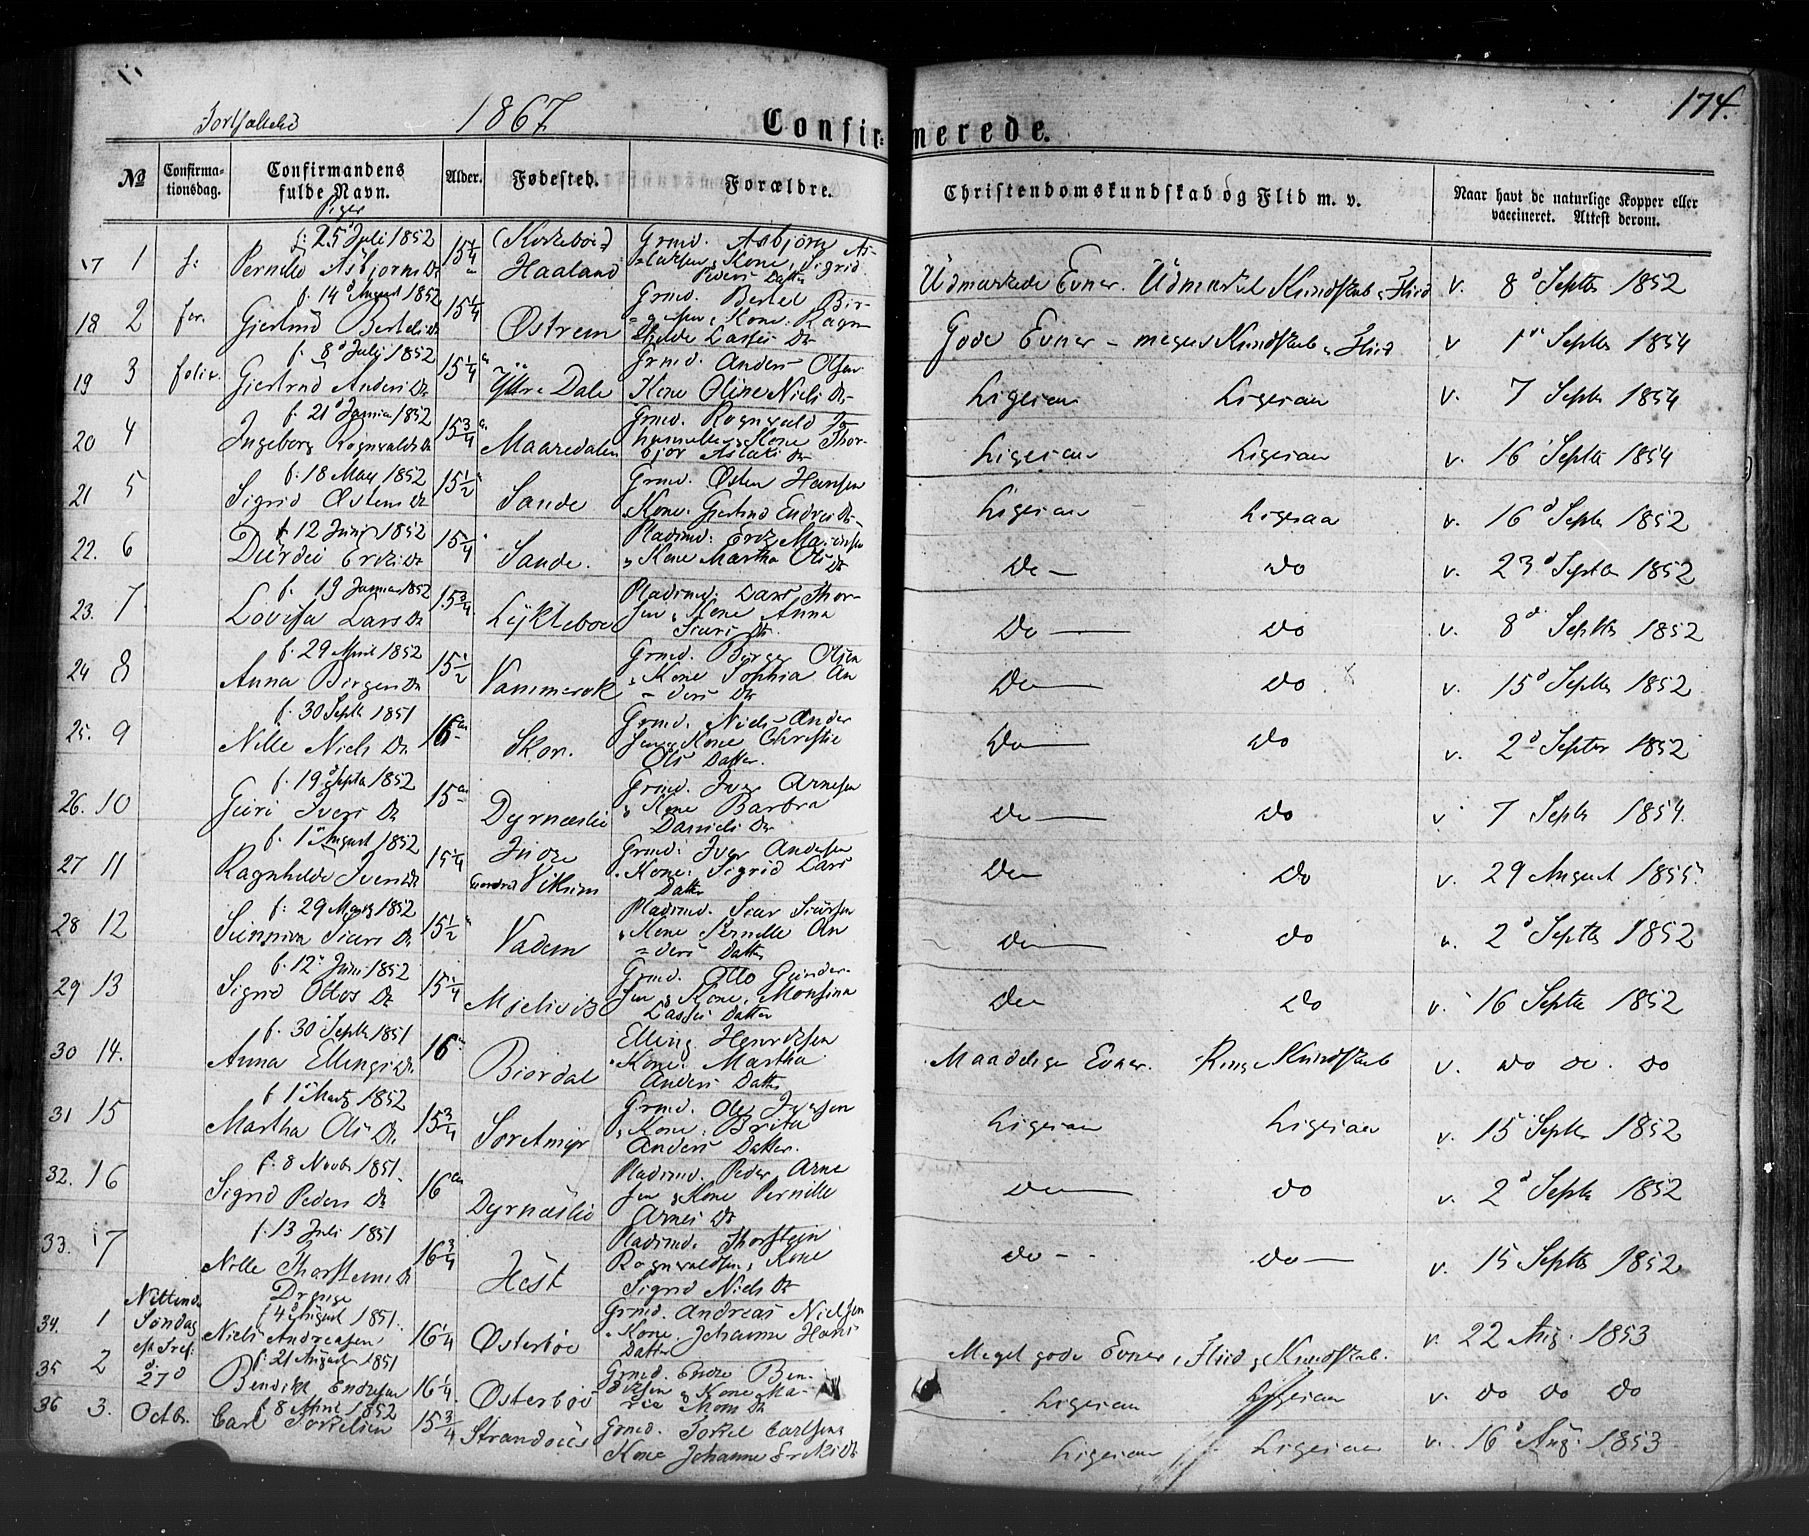 Fortsættelse 1867 Confirmerede. 174.
№ Confirmationsdag. Confirmandens fulde Navn. Alder. Fødested. Forældre. Christendomskundskab og Flid m. v. Naar havt de naturlige Kopper eller vaccineret. Attest derom.
Piger
f. 25 Juli 1852
17 1 Pernille Asbjørns Dr 15 1/4 Haaland Grmd. Asbjørn Aslaksen, Kone, Sigrid Peders Datter Udmærkede Evner. Udmærket Kundskab & Flid v. 8d Septbr 1852
f. 14 August 1852
18 2 for. Gjertrud Bertels Dr 15 1/4 Østrem Grmd. Bertel Birgesen, Kone. Ragnhilde Lasses Dr Gode Evner – megen Kundskab & Flid v 1d Septbr 1854
f. 8d Juli 1852
19 3 Gjertrud Anders Dr 15 1/4 Yttre Dale Grmd. Anders Olsen Kone Oline Niels Dr Ligesaa Ligesaa v. 7 Septb 1854
f. 21d Januar 1852
20 4 Ingeborg Rognvalds Dr 15 3/4 Maaredalen Grmd. Rognvald Kone Thorbjør Aslaks Dr Ligesaa Ligesaa v. 16 Septb 1854
f. 18 May 1852
21 5 Sigrid Østens Dr 15 1/2 Sande Grmd. Østen Hansen Kone. Gjertrud Endres Dr Ligesaa Ligesaa v. 16d Septb 1852
f. 12 Juni 1852
22. 6 Eriks Dr 15 1/4 Sande. Pladsmd. Erik & Kone Martha Ols Dr Do Do v. 23d Septbr 1852
f. 19 Januar 1852
23. 7 Lovisa Lars Dr 15 3/4 Lykkeboe Pladsmd. Lars Thorsen & Kone Anna Siurs Dr. Do Do v. 8d Septbr 1852
f. 29 April 1852
24 8 Anna Birges Dr 15 1/2 Vammersvk Grmd. Birge Olsen & Kone Sophia Anders Dr Do Do v. 15d Septbr 1852
f. 30 Septb 1851
25. 9 Nille Niels Dr 16 aar Skor. Grmd. Niels Andersen & Kone Christie Ols Datter. Do Do v. 2d Septbr 1852
f. 19d Septbr 1852
26. 10 Guri Ivers Dr 15 aar Dyrnæslie Grmd. Iver Arnesen & Kone Barbra Daniels Dr Do Do v 7 Septb 1854.
f. 1 August 1852
27 11 Ragnhilde Ivers Dr 15 1/4 Indre Vikum Grmd. Iver Andersen Kone. Sigrid Lars Datter Do Do v. 29 August 1855.
f. 29 Marts 1852
28 12 Sunniva Siurs Dr 15 1/2 Vadem Pladsmd. Siur Siursen & Kone Pernille Anders Datter Do Do v. 2d Septbr 1852
f. 12 Juni 1852
29 13 Sigrid Ottos Dr 15 1/4 Mjelsvik Grmd. Otto Gundersen & Kone. Monsina Lasses Datter Do Do v. 16 Septbr 1852
f. 30 Septb 1851
30 14. Anna Ellings Dr 16 Biordal Elling Henriksen Kone. Martha Anders Datter Maadelige Evner. Ringe Kundskab v. do do. do
f 1d Marts 1852
31 15 Martha Ols Dr. 15 3/4 Søretmyr Grmd. Ole Iversen & Kone. Brita Anders Datter. Ligesaa Ligesaa v. 15 Septbr 1852
f. 8 Novbr 1851.
32. 16 Sigrid Peders Dr 16 aar Dyrnæslie Pladsmd. Peder Arnesen & Kone Pernille Arnes Dr Do do v. 2d Septb 1852
f. 13 Juli 1851
33. 17 Nille Thorsteins Dr 16 3/4 Hest Pladsmd. Thorstein Rognvaldsen & Kone Sigrid Niels Dr do do v. 15 Septbr 1852
Drenge
f 4d August 1851.
34. 1 Nittende Søndag eft Tref: Niels Andreasen 16 1/4 Østerbøe Grmd. Andreas Nielsen & Kone. Johanne Hans Datter Meget gode Evner, Flid & Kundskab. v. 22 Aug. 1853
f. 21 August 1851
35 2 d. 27d Bendikt Endresen 16 1/4 Østerbøe Grmd. Endre Bendiksen & Kone Mons Dr Ligesaa Ligesaa v. do do do
f 8 April 1852
36 3. Octbr. Carl Torkelsen 15 3/4 Strandnæs Grmd. Torkel Carlsen & Kone Johanne Eriks Dr Ligesaa Ligesaa v. 16d Aug. 1853